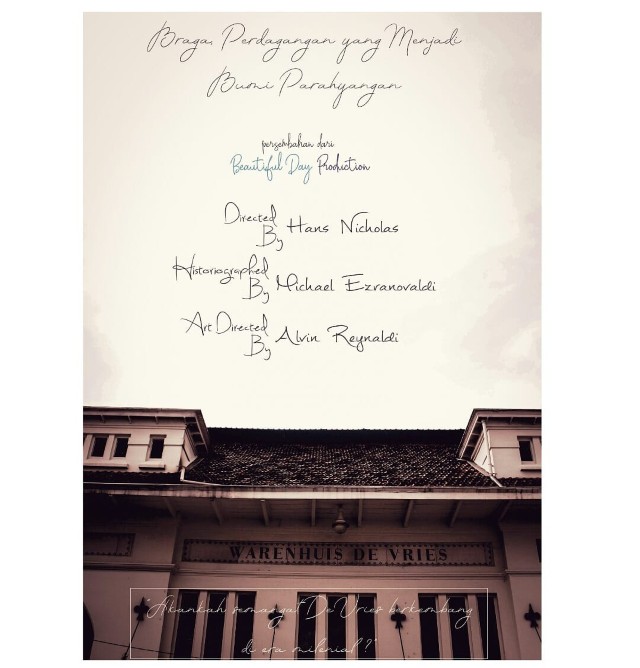 Braga, Perdagangan yang Menjadi
Bumi Parahyangan
persembahan dari
Beautiful Day Production
Directed
By Hans Nicholas
Historiographed
By Michael Ezranovaldi
Art Directed
By Alvin Reynaldi
WARENHUIS DE VRIES
"Akankah semangat De Vries berkembang
di era milenial?"